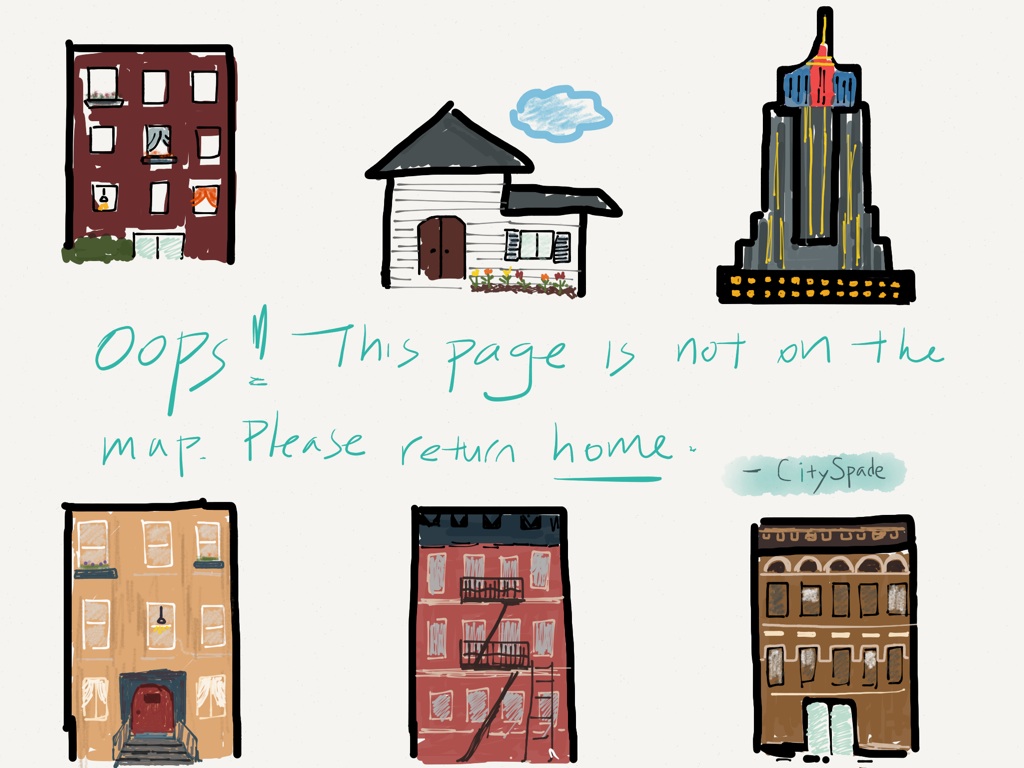 Oops! This page is not on the
map. Please return home.
- CitySpade